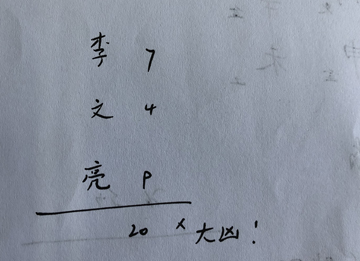 李 7
文 4
亮 9
20 × 大凶!